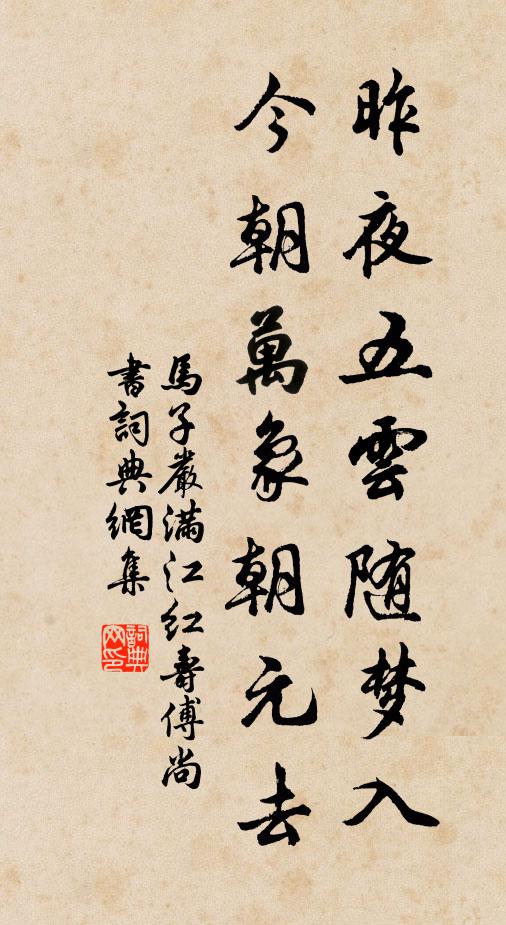 昨夜五雲随梦入
今朝萬象朝元去
馬子嚴滿江红壽傅尚
書詞典網集
詞典
网印